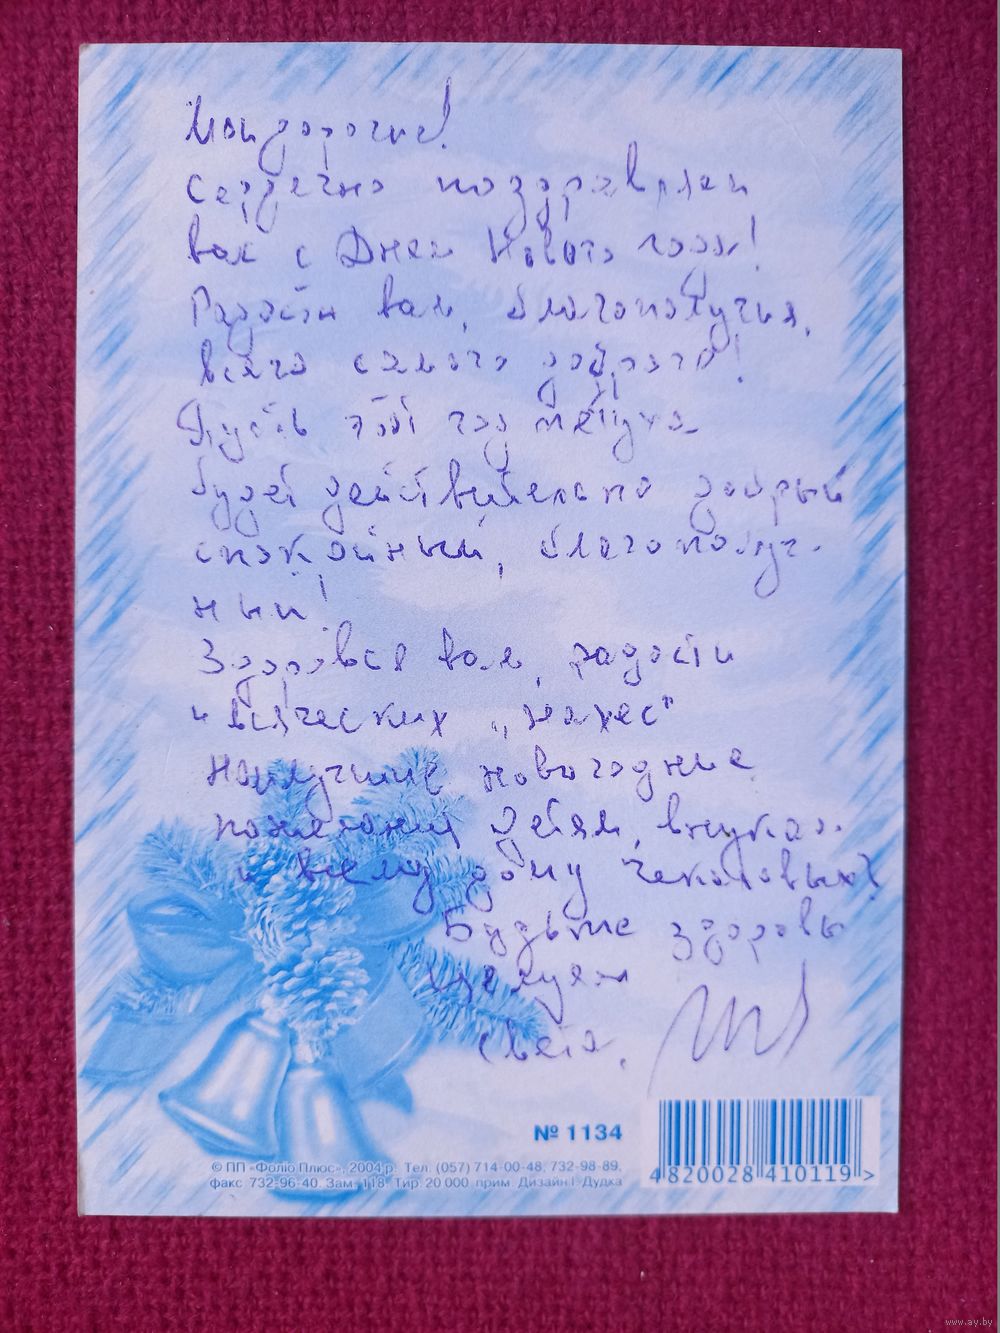 Мои дорогие!
Сердечно поздравляем
вас с Днем Нового года!
Радости вам, благополучия,
всего самого доброго!
Пусть этот год петуха
будет действительно добрый
спокойный, благополуч-
ный!
Здоровья вам, радости
и всяческих „нахес"
Наилучшие новогодние
пожелания детям, внукам
и всему дому Чекатовых!
Будьте здоровы
Целуем
Света,
№ 1134
© ПП «Фоліо Плюс», 2004 р. Тел. (057) 714-00-48, 732-98-89,
факс 732-96-40. Зам. 118. Тир. 20 000 прим. Дизайн І. Дудка
4 820028 410119 >
www.ay.by